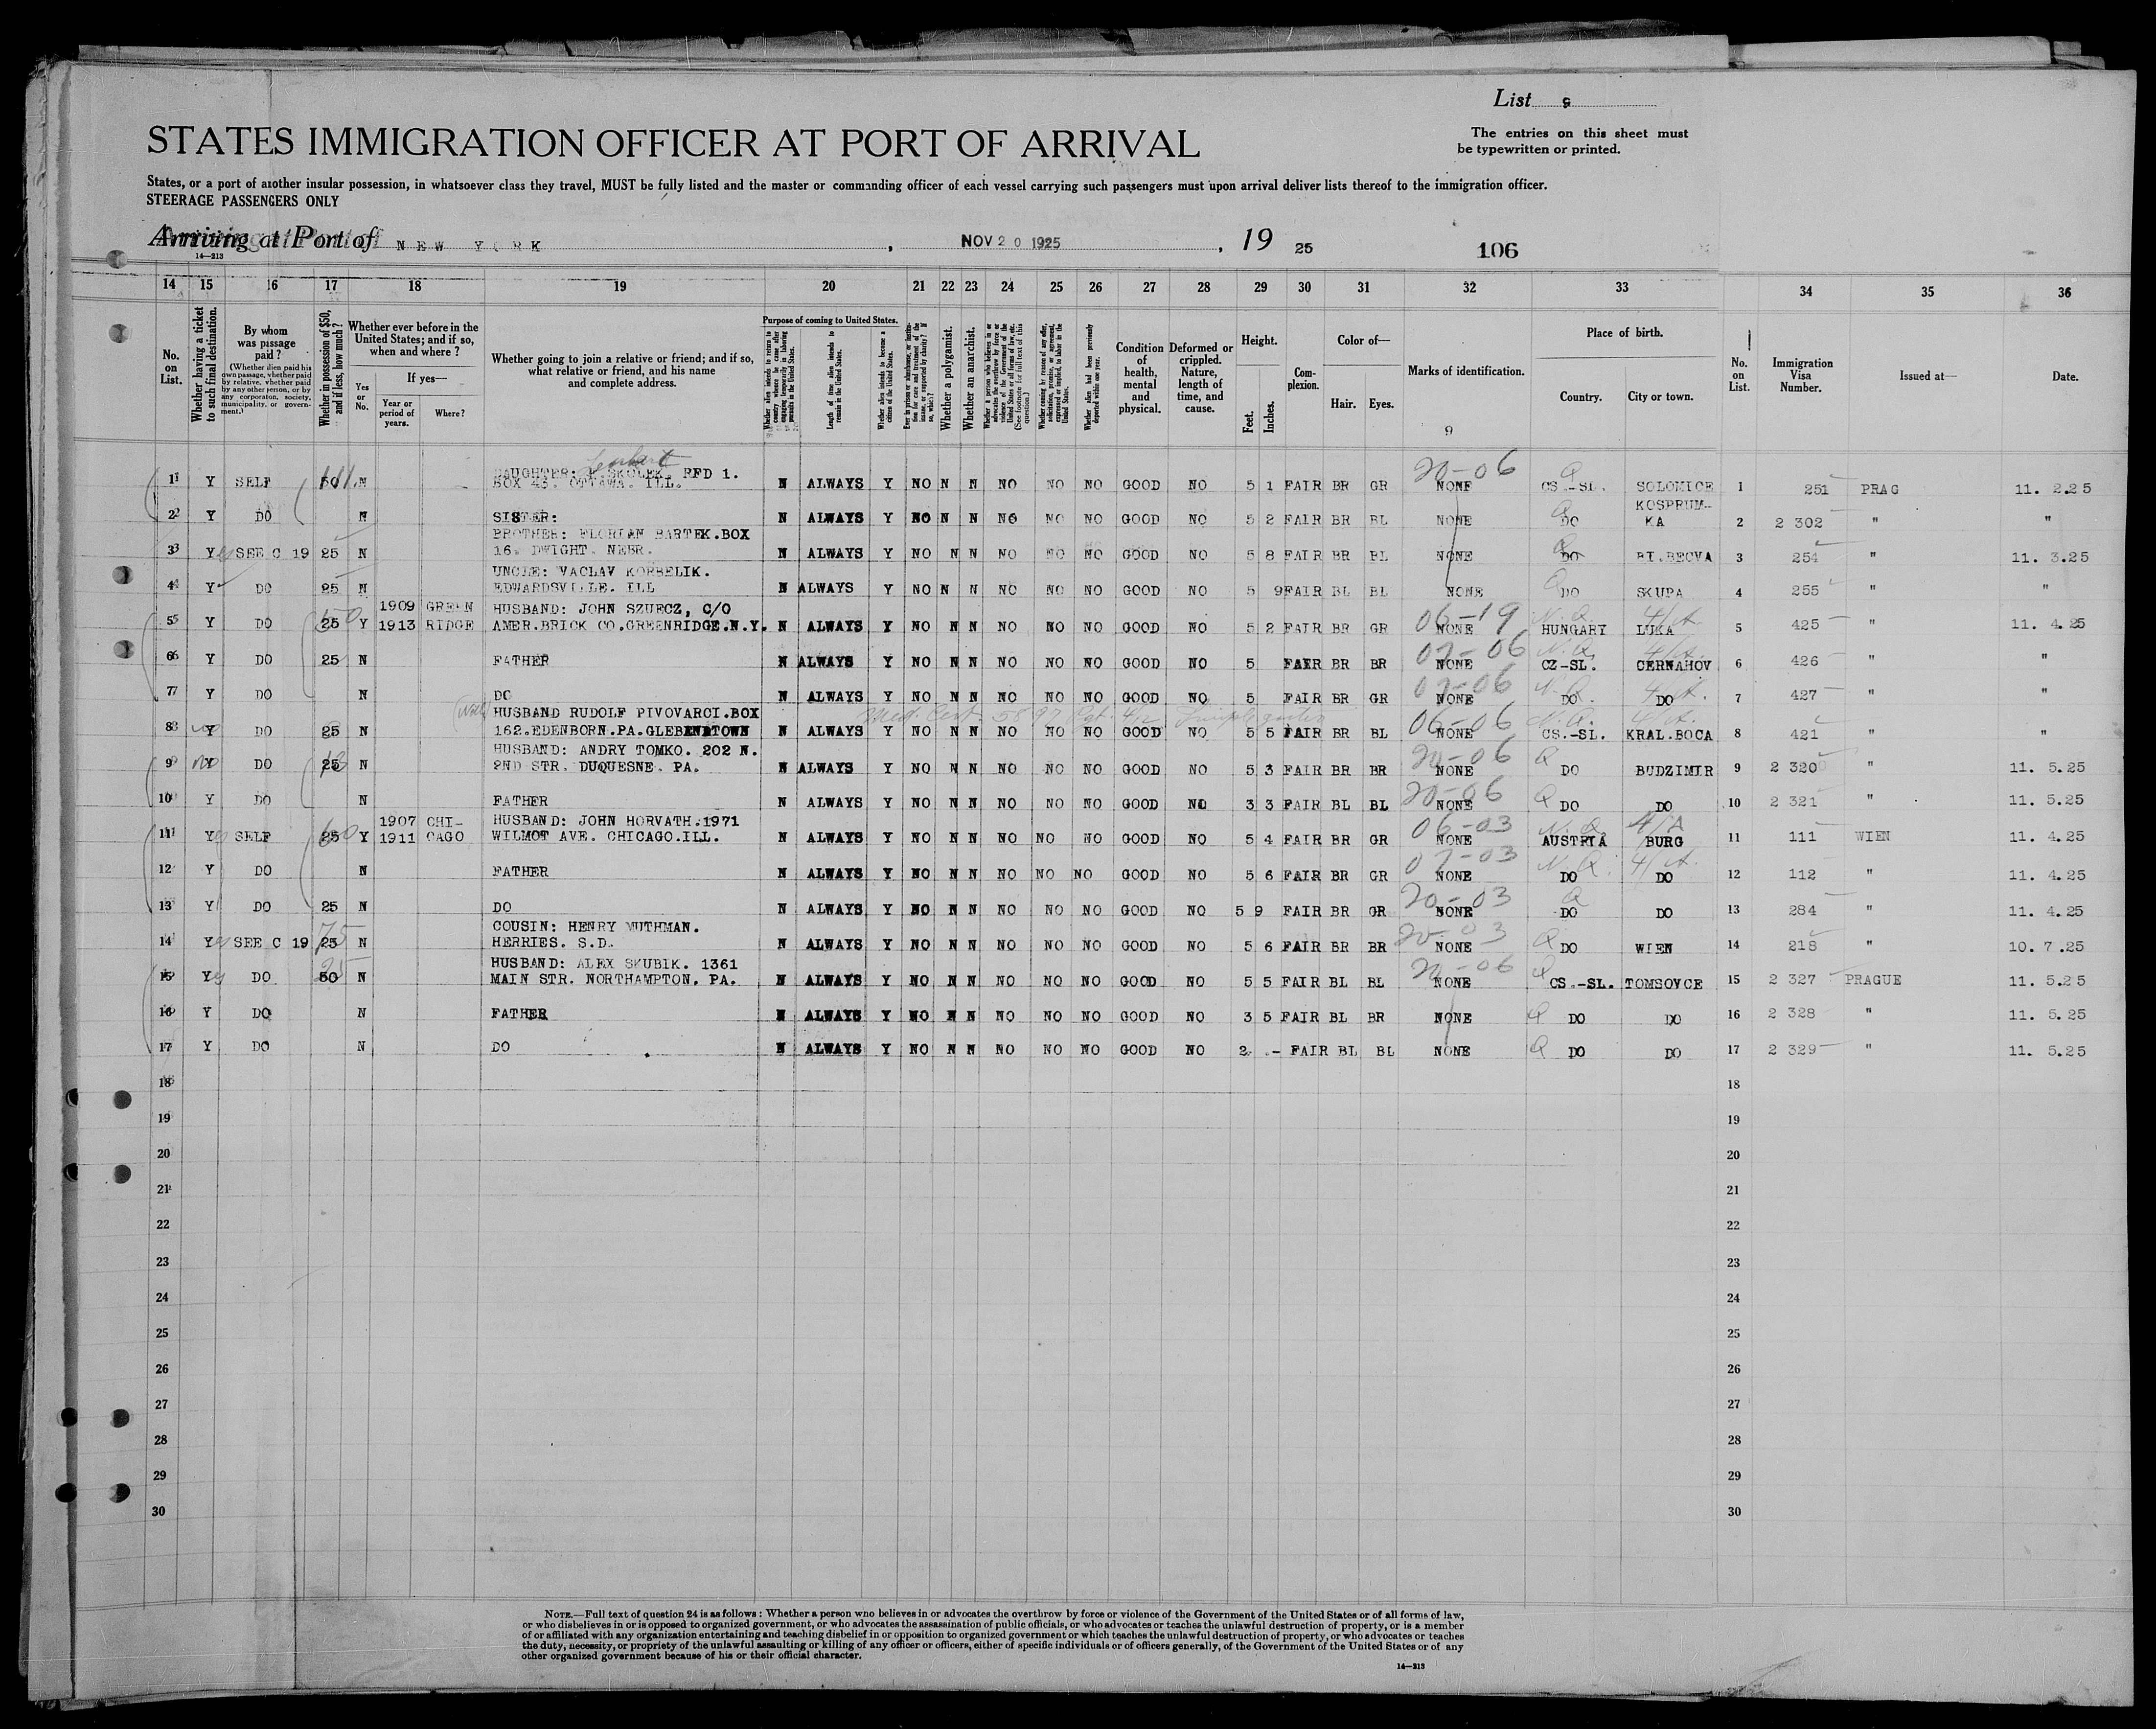 List 9
STATES IMMIGRATION OFFICER AT PORT OF ARRIVAL
The entries on this sheet must
be typewritten or printed.
States, or a port of another insular possession, in whatsoever class they travel, MUST be fully listed and the master or commanding officer of each vessel carrying such passengers must upon arrival deliver lists thereof to the immigration officer.
STEERAGE PASSENGERS ONLY
Arriving at Port of NEW YORK, NOV 20 1925, 19 25 106
14—213
14 15 16 17 18 19 20 21 22 23 24 25 26 27 28 29 30 31 32 33 34 35 36
No. on List.
Whether having a ticket to such final destination.
By whom was passage paid?
(Whether alien paid his own passage, whether paid by relative, whether paid by any other person, or by any corporation, society, municipality, or government.)
Whether in possession of $50, and if less, how much?
Whether ever before in the United States; and if so, when and where?
Yes or No.
If yes—
Year or period of years.
Where?
Whether going to join a relative or friend; and if so, what relative or friend, and his name and complete address.
Purpose of coming to United States.
Length of time alien intends to remain in the United States.
Whether alien intends to become a citizen of the United States.
Whether a polygamist.
Whether an anarchist.
Condition of health, mental and physical.
Deformed or crippled. Nature, length of time, and cause.
Height.
Feet. Inches.
Complexion.
Color of—
Hair. Eyes.
Marks of identification.
9
Place of birth.
Country. City or town.
No. on List.
Immigration Visa Number.
Issued at—
Date.
DAUGHTER: SKULEK. RFD 1.
1 Y SELF N BOX 43. OTTAWA. ILL. N ALWAYS Y NO N N NO NO NO GOOD NO 5 1 FAIR BR GR 20-06 NONE Q CS.-SL. SOLOMICE 1 251 PRAG 11. 2.25
KOSPRUM-
2 Y DO N SISTER: N ALWAYS Y NO N N NO NO NO GOOD NO 5 2 FAIR BR BL NONE DO KA 2 2 302 " "
BROTHER: FLORIAN BARTEK.BOX
3 Y SEE C 19 25 N 16. DWIGHT. NEBR. N ALWAYS Y NO N N NO NO NO GOOD NO 5 8 FAIR BR BL NONE DO BI.BECVA 3 254 " 11. 3.25
UNCLE: VACLAV KORBELIK.
4 Y DO 25 N EDWARDSVILLE. ILL N ALWAYS Y NO N N NO NO NO GOOD NO 5 9 FAIR BL BL NONE Q DO SKUPA 4 255 " "
1909 GREEN HUSBAND: JOHN SZUECZ, C/O
5 Y DO 25 Y 1913 RIDGE AMER.BRICK CO.GREENRIDGE.N.Y. N ALWAYS Y NO N N NO NO NO GOOD NO 5 2 FAIR BR GR 06-19 NONE N.Q. HUNGARY LUKA 5 425 " 11. 4.25
6 Y DO 25 N FATHER N ALWAYS Y NO N N NO NO NO GOOD NO 5 FAIR BR BR 07-06 NONE N.Q. CZ-SL. CERNAHOV 6 426 " "
7 Y DO N DO N ALWAYS Y NO N N NO NO NO GOOD NO 5 FAIR BR GR 07-06 NONE N.Q. DO DO 7 427 " "
HUSBAND RUDOLF PIVOVARCI.BOX
8 Y DO 25 N 162.EDENBORN.PA. N ALWAYS Y NO N N NO NO NO GOOD NO 5 5 FAIR BR BL 06-06 NONE N.Q. CS.-SL. KRAL.BOCA 8 421 " "
HUSBAND: ANDRY TOMKO. 202 N.
9 Y DO 25 N 2ND STR. DUQUESNE. PA. N ALWAYS Y NO N N NO NO NO GOOD NO 5 3 FAIR BR BR 20-06 NONE Q DO BUDZIMIR 9 2 320 " 11. 5.25
10 Y DO N FATHER N ALWAYS Y NO N N NO NO NO GOOD NO 3 3 FAIR BL BL 20-06 NONE Q DO DO 10 2 321 " 11. 5.25
1907 CHI- HUSBAND: JOHN HORVATH.1971
11 Y SELF 25 Y 1911 CAGO WILMOT AVE. CHICAGO.ILL. N ALWAYS Y NO N N NO NO NO GOOD NO 5 4 FAIR BR GR 06-03 NONE N.Q. AUSTRIA BURG 11 111 WIEN 11. 4.25
12 Y DO N FATHER N ALWAYS Y NO N N NO NO NO GOOD NO 5 6 FAIR BR GR 07-03 NONE N.Q. DO DO 12 112 " 11. 4.25
13 Y DO 25 N DO N ALWAYS Y NO N N NO NO NO GOOD NO 5 9 FAIR BR GR 20-03 NONE Q DO DO 13 284 " 11. 4.25
COUSIN: HENRY MUTHMAN.
14 Y SEE C 19 25 N HERRIES. S.D. N ALWAYS Y NO N N NO NO NO GOOD NO 5 6 FAIR BR BR 20-03 NONE Q DO WIEN 14 218 " 10. 7.25
HUSBAND: ALEX SKUBIK. 1361
15 Y DO 50 N MAIN STR. NORTHAMPTON. PA. N ALWAYS Y NO N N NO NO NO GOOD NO 5 5 FAIR BL BL 20-06 NONE Q CS.-SL. TOMSOVCE 15 2 327 PRAGUE 11. 5.25
16 Y DO N FATHER N ALWAYS Y NO N N NO NO NO GOOD NO 3 5 FAIR BL BR NONE Q DO DO 16 2 328 " 11. 5.25
17 Y DO N DO N ALWAYS Y NO N N NO NO NO GOOD NO 2 - FAIR BL BL NONE Q DO DO 17 2 329 " 11. 5.25
18 18
19 19
20 20
21 21
22 22
23 23
24 24
25 25
26 26
27 27
28 28
29 29
30 30
NOTE.—Full text of question 24 is as follows: Whether a person who believes in or advocates the overthrow by force or violence of the Government of the United States or of all forms of law,
or who disbelieves in or is opposed to organized government, or who advocates the assassination of public officials, or who advocates or teaches the unlawful destruction of property, or is a member
of or affiliated with any organization entertaining and teaching disbelief in or opposition to organized government or which teaches the unlawful destruction of property, or who advocates or teaches
the duty, necessity, or propriety of the unlawful assaulting or killing of any officer or officers, either of specific individuals or of officers generally, of the Government of the United States or of any
other organized government because of his or their official character.
14—213